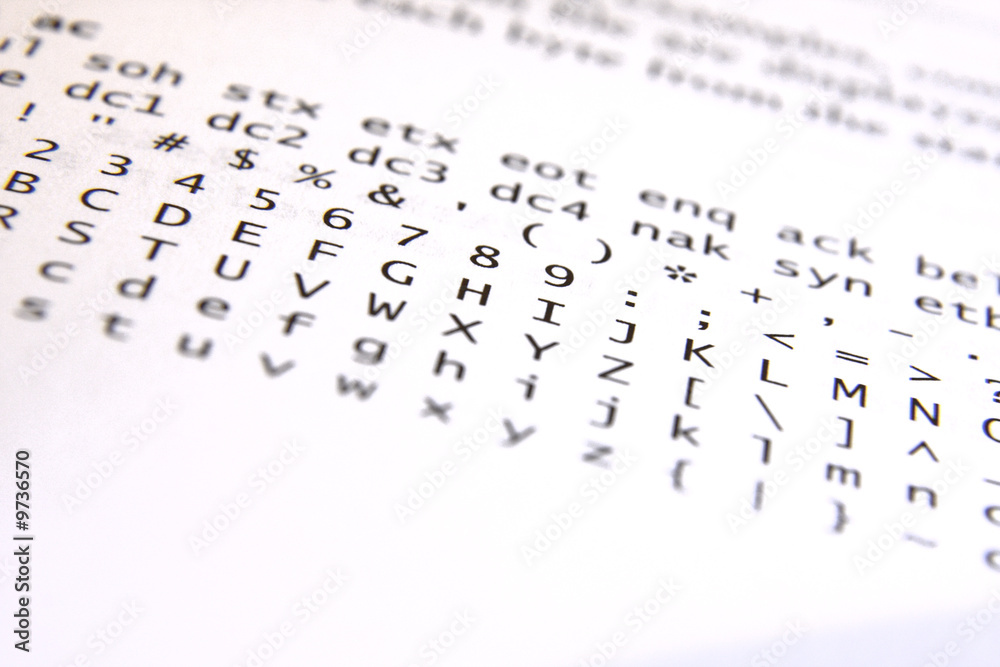 each byte from the
ac
soh stx etx eot enq ack bel
dc1 dc2 dc3 dc4 nak syn etb
! " # $ % & ' ( ) * + , - .
2 3 4 5 6 7 8 9 : ; < = > ?
B C D E F G H I J K L M N O
R S T U V W X Y Z [ \ ] ^ _
c d e f g h i j k l m n o
s t u v w x y z { | } ~
Adobe Stock | #9736570